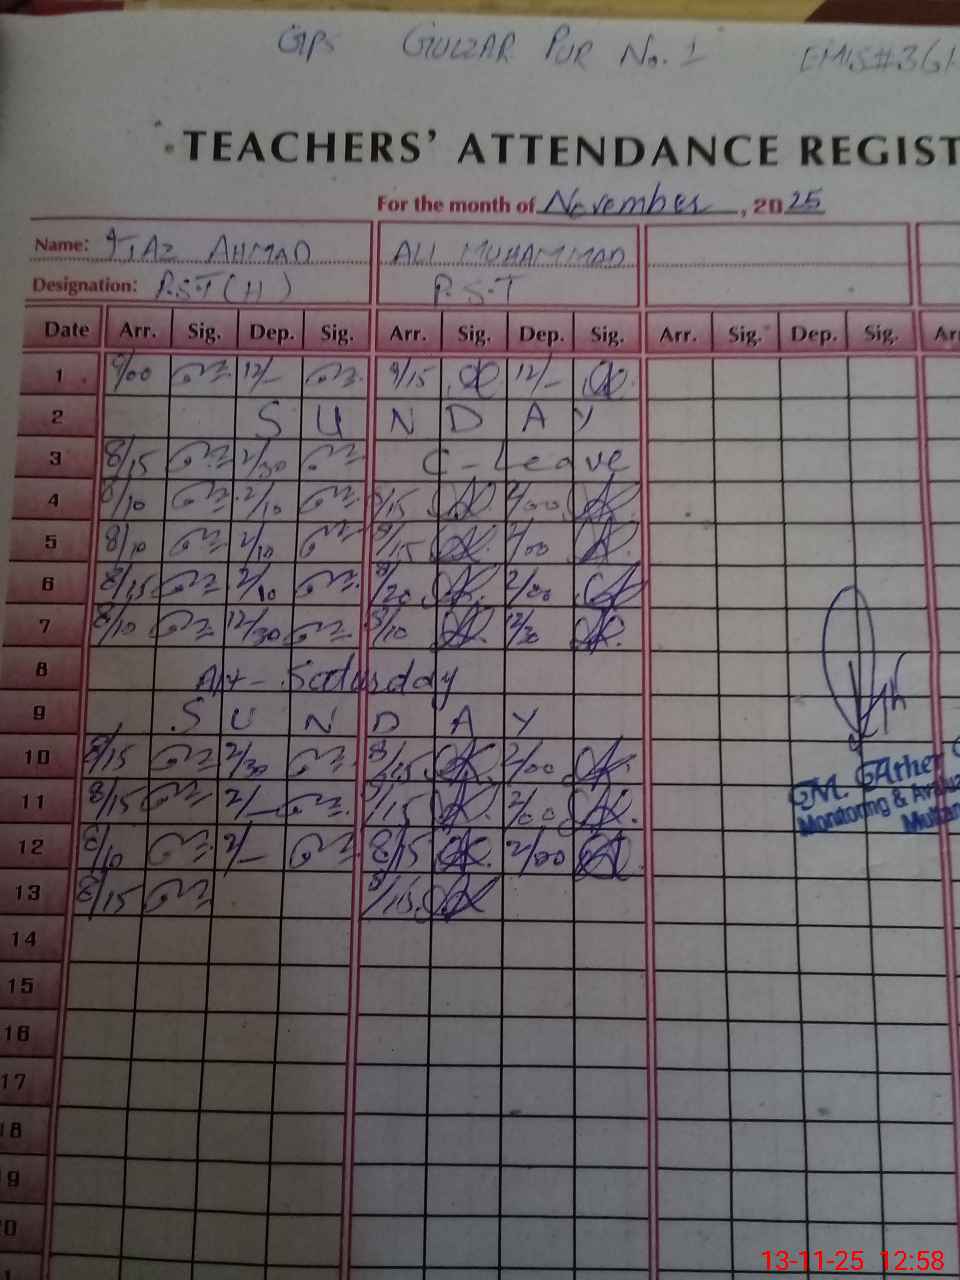 GPS GULZAR PUR No. 1 EMIS#361
TEACHERS' ATTENDANCE REGIST
For the month of November, 2025
Name: IJAZ AHMAD ALI MUHAMMAD
Designation: P.S.T (H) P.S.T
Date Arr. Sig. Dep. Sig. Arr. Sig. Dep. Sig. Arr. Sig. Dep. Sig. Arr
1 9/00 12/- 9/15 12/-
2 SUNDAY
3 8/15 2/30 C-Leave
4 8/10 2/10 8/15 2/00
5 8/10 2/10 8/15 2/00
6 8/15 2/10 8/20 2/00
7 8/10 12/30 8/10 12/30
8 Saturday
9 SUNDAY
10 8/15 2/30 8/15 2/00
11 8/15 2/- 8/15 2/00
12 8/10 2/- 8/15 2/00
13 8/15 8/10
14
15
16
17
18
9
0
M. Ather
Monitoring &
13-11-25 12:58